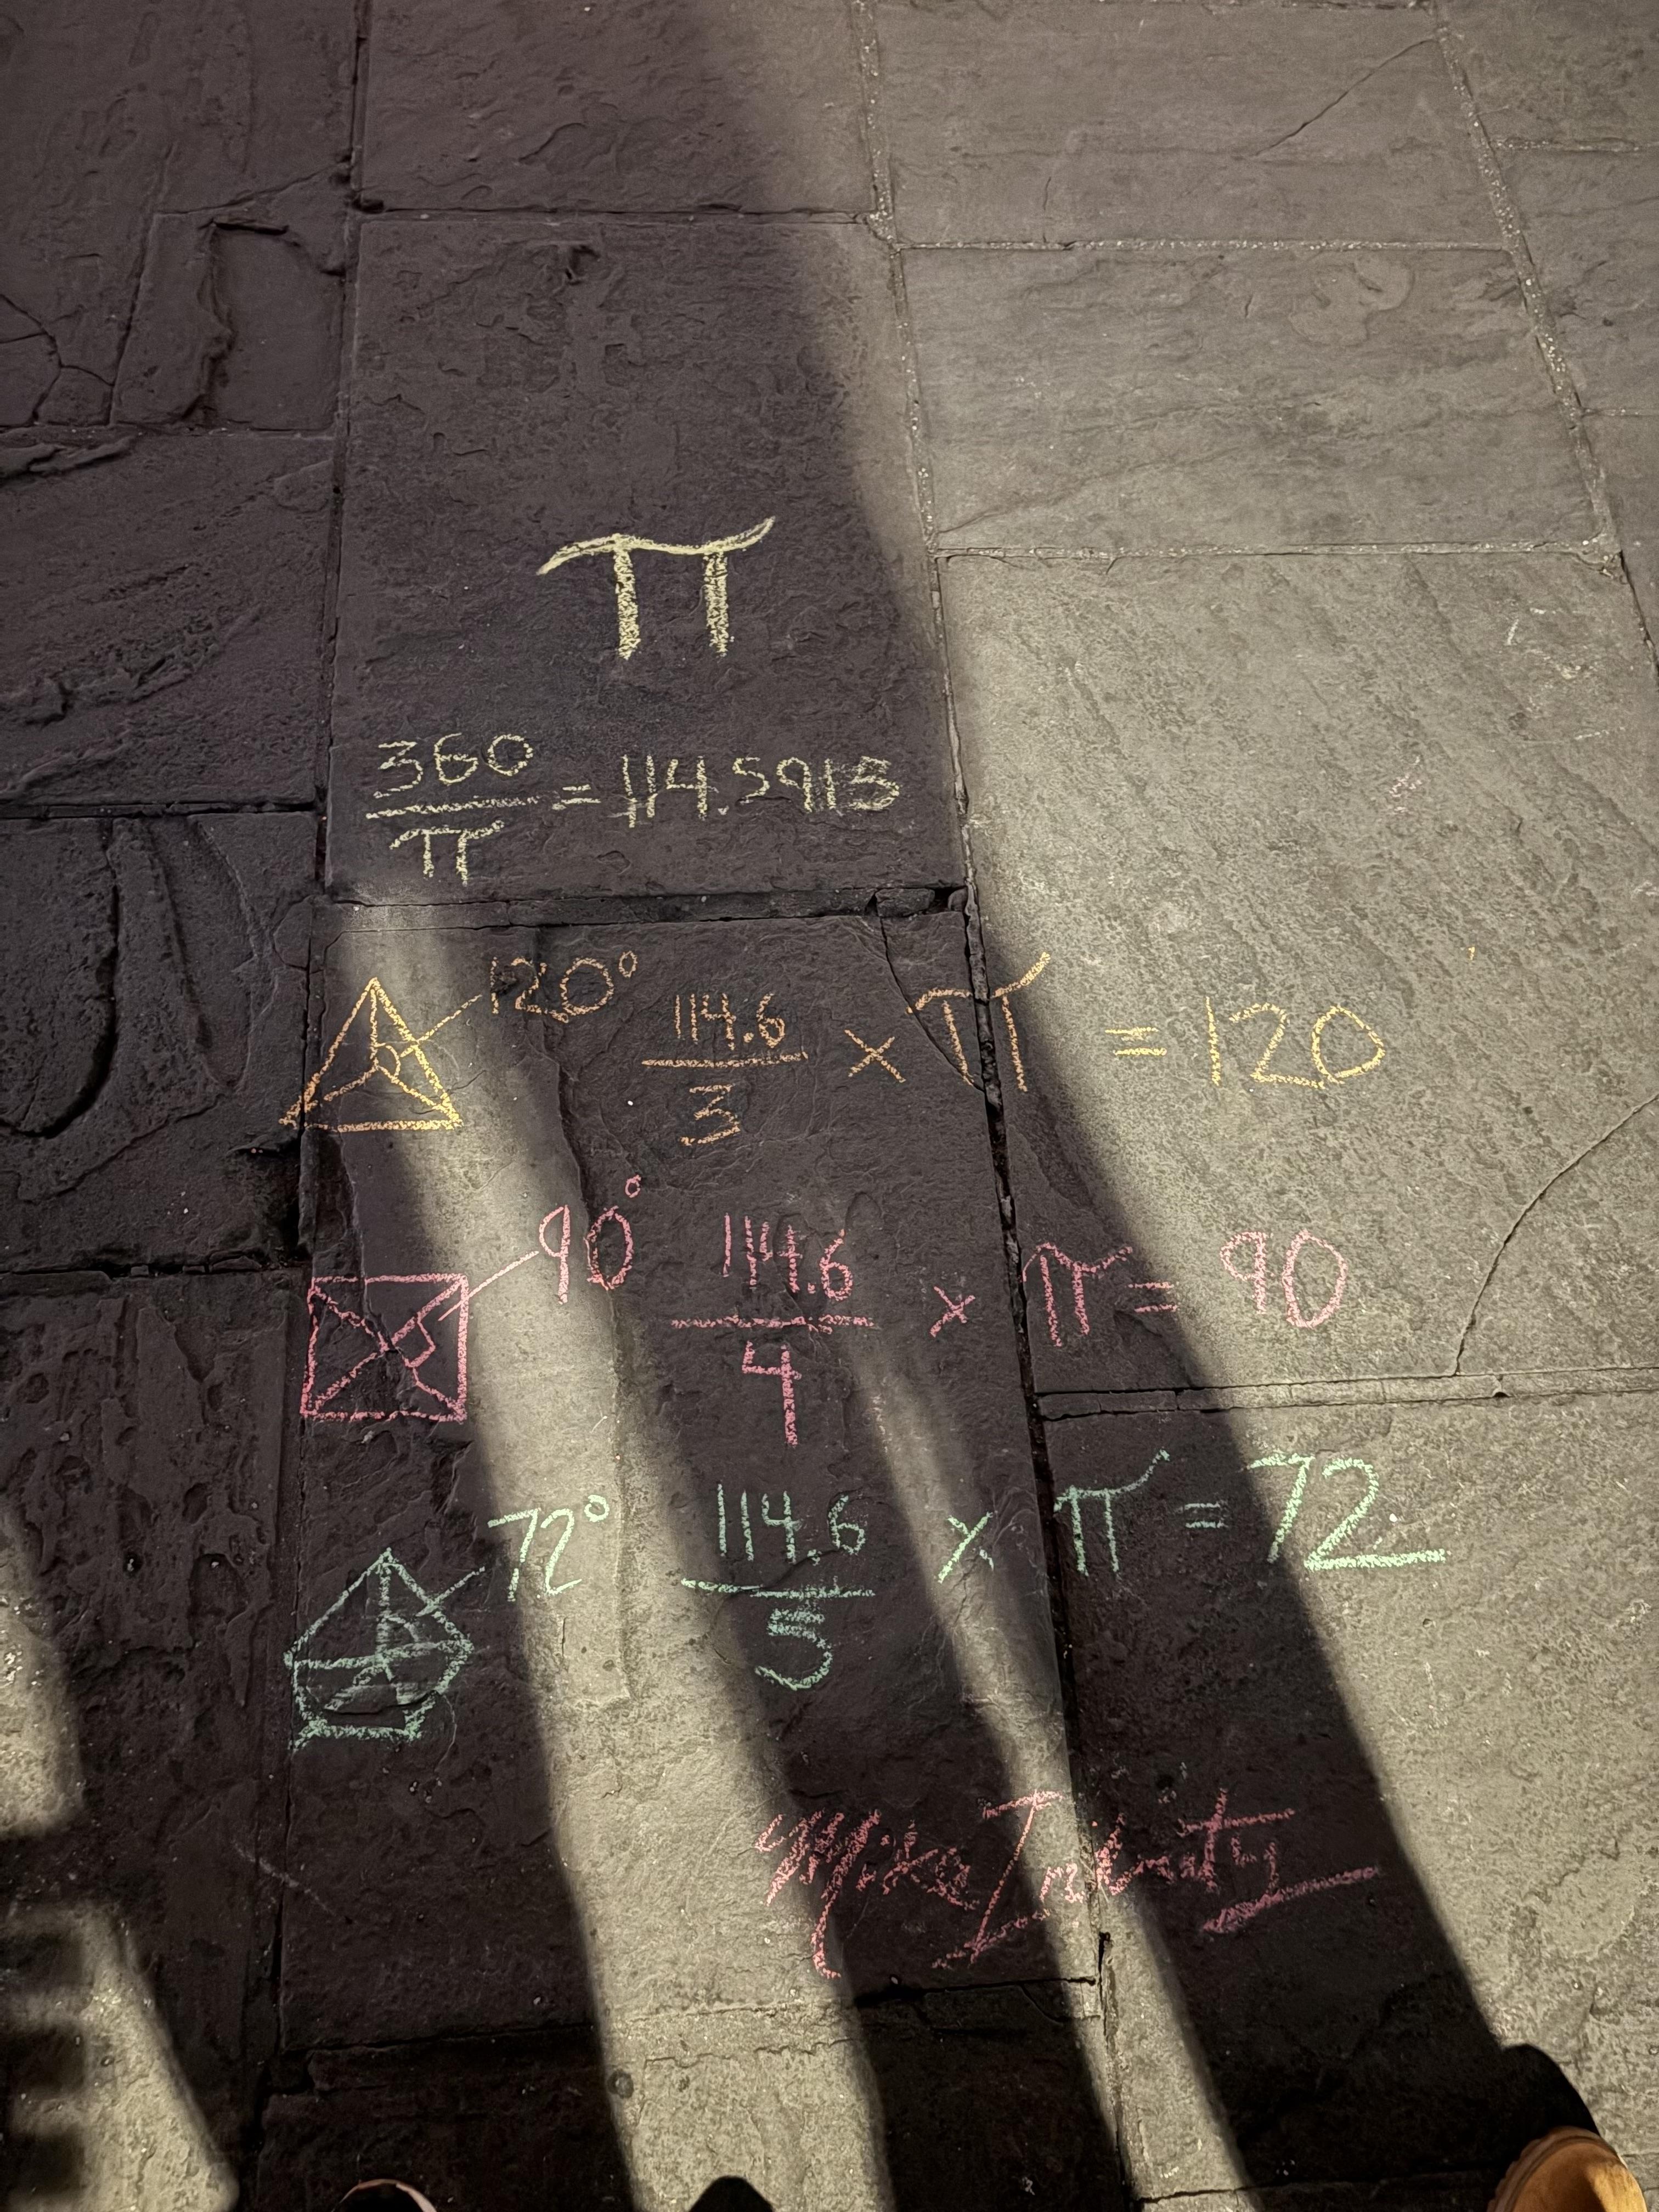 π
360/π = 114.5915
120° 114.6/3 × π = 120
90° 114.6/4 × π = 90
72° 114.6/5 × π = 72
Mike